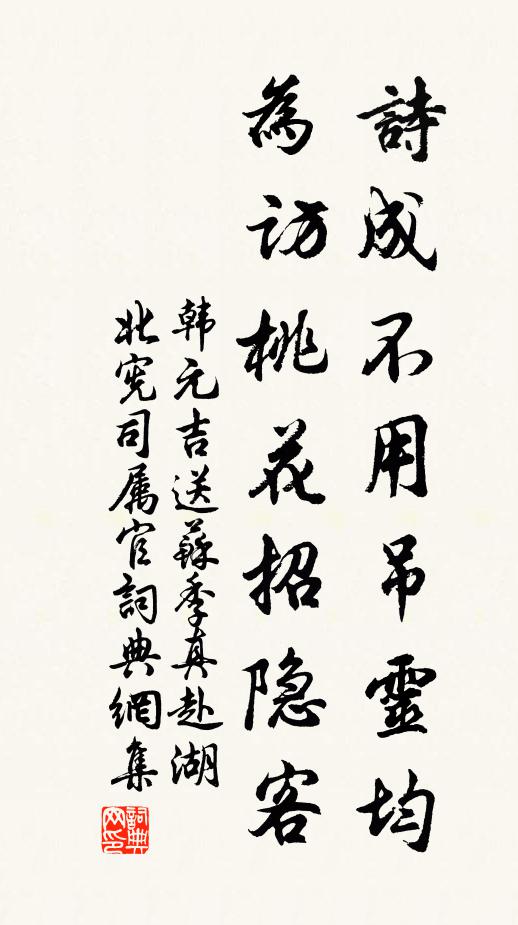 詩成不用吊靈均
為访桃花招隐客
韩元吉送蘇季真赴湖
北宪司属官詞典網集
詞典网印